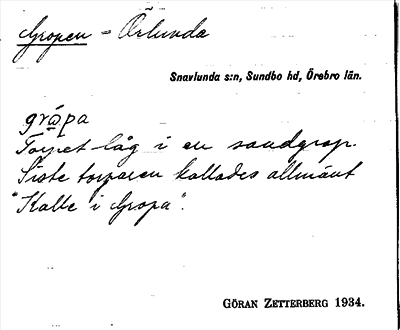 Gropen - Örlunda
Snavlunda s:n, Sundbo hd, Örebro län.
gròpa
Torpet låg i en sandgrop.
Siste torparen kallades allmänt
"Kalle i Gropa".
GÖRAN ZETTERBERG 1934.